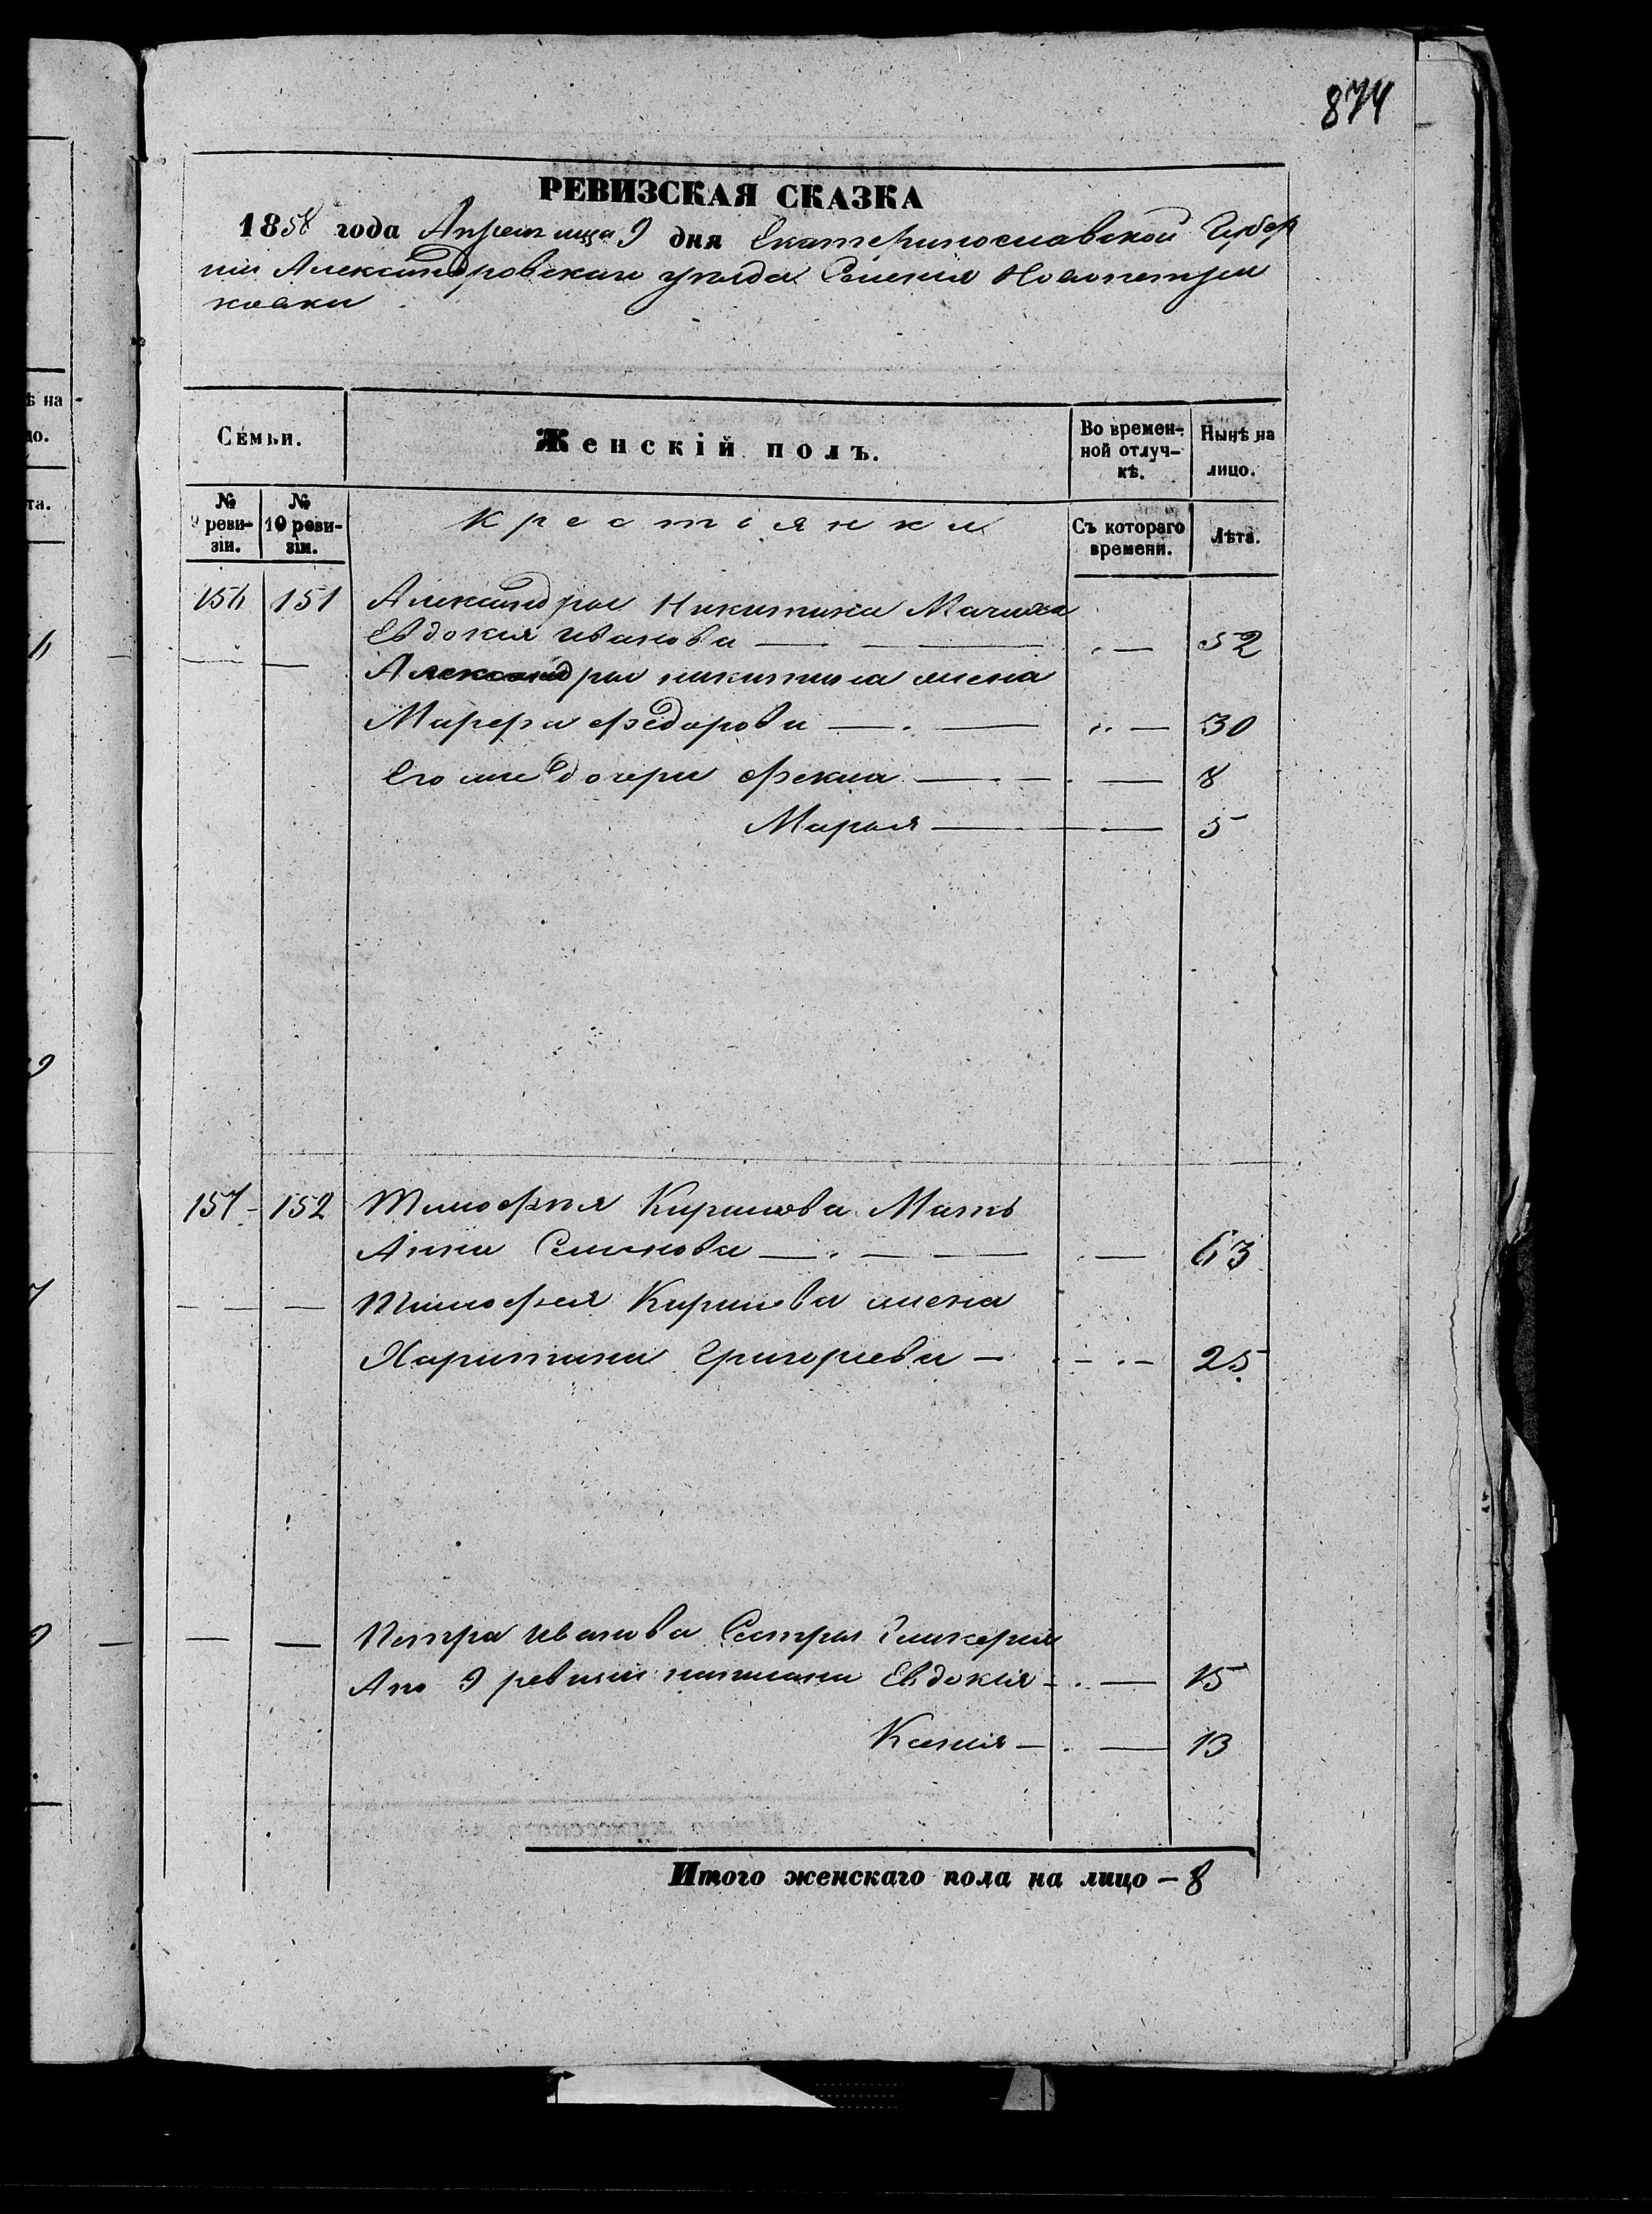 874
РЕВИЗСКАЯ СКАЗКА
1858 года Апреля мца 9 дня Екатеринославской Губер
нии Александровскаго уезда Селения Новопетри
ковки
Семьи.
Женскій полъ.
Во времен-
ной отлуч-
кѣ.
Нынѣ на
лицо.
№
9 реви-
зіи.
№
10 реви-
зіи.
Крестьянки
Съ котораго
времени.
Лѣта.
156 151 Александры Никитина Мачиха
Евдокия Иванова — — 52
Александры никитина жена
Марфа Федорова — — 30
Его же дочери Фекла — — 8
Марья — — 5
157 - 152 Тимофея Кирилова Мать
Анна Семенова — — 63
— — Тимофея Кирилова жена
Харитина Григорьева — — 25
— — Петра Иванова Сестры Гликерия
А по 9 ревизии написана Евдокия - — 15
Ксения — — 13
Итого женскаго пола на лицо — 8
ѣ на
цо.
та.